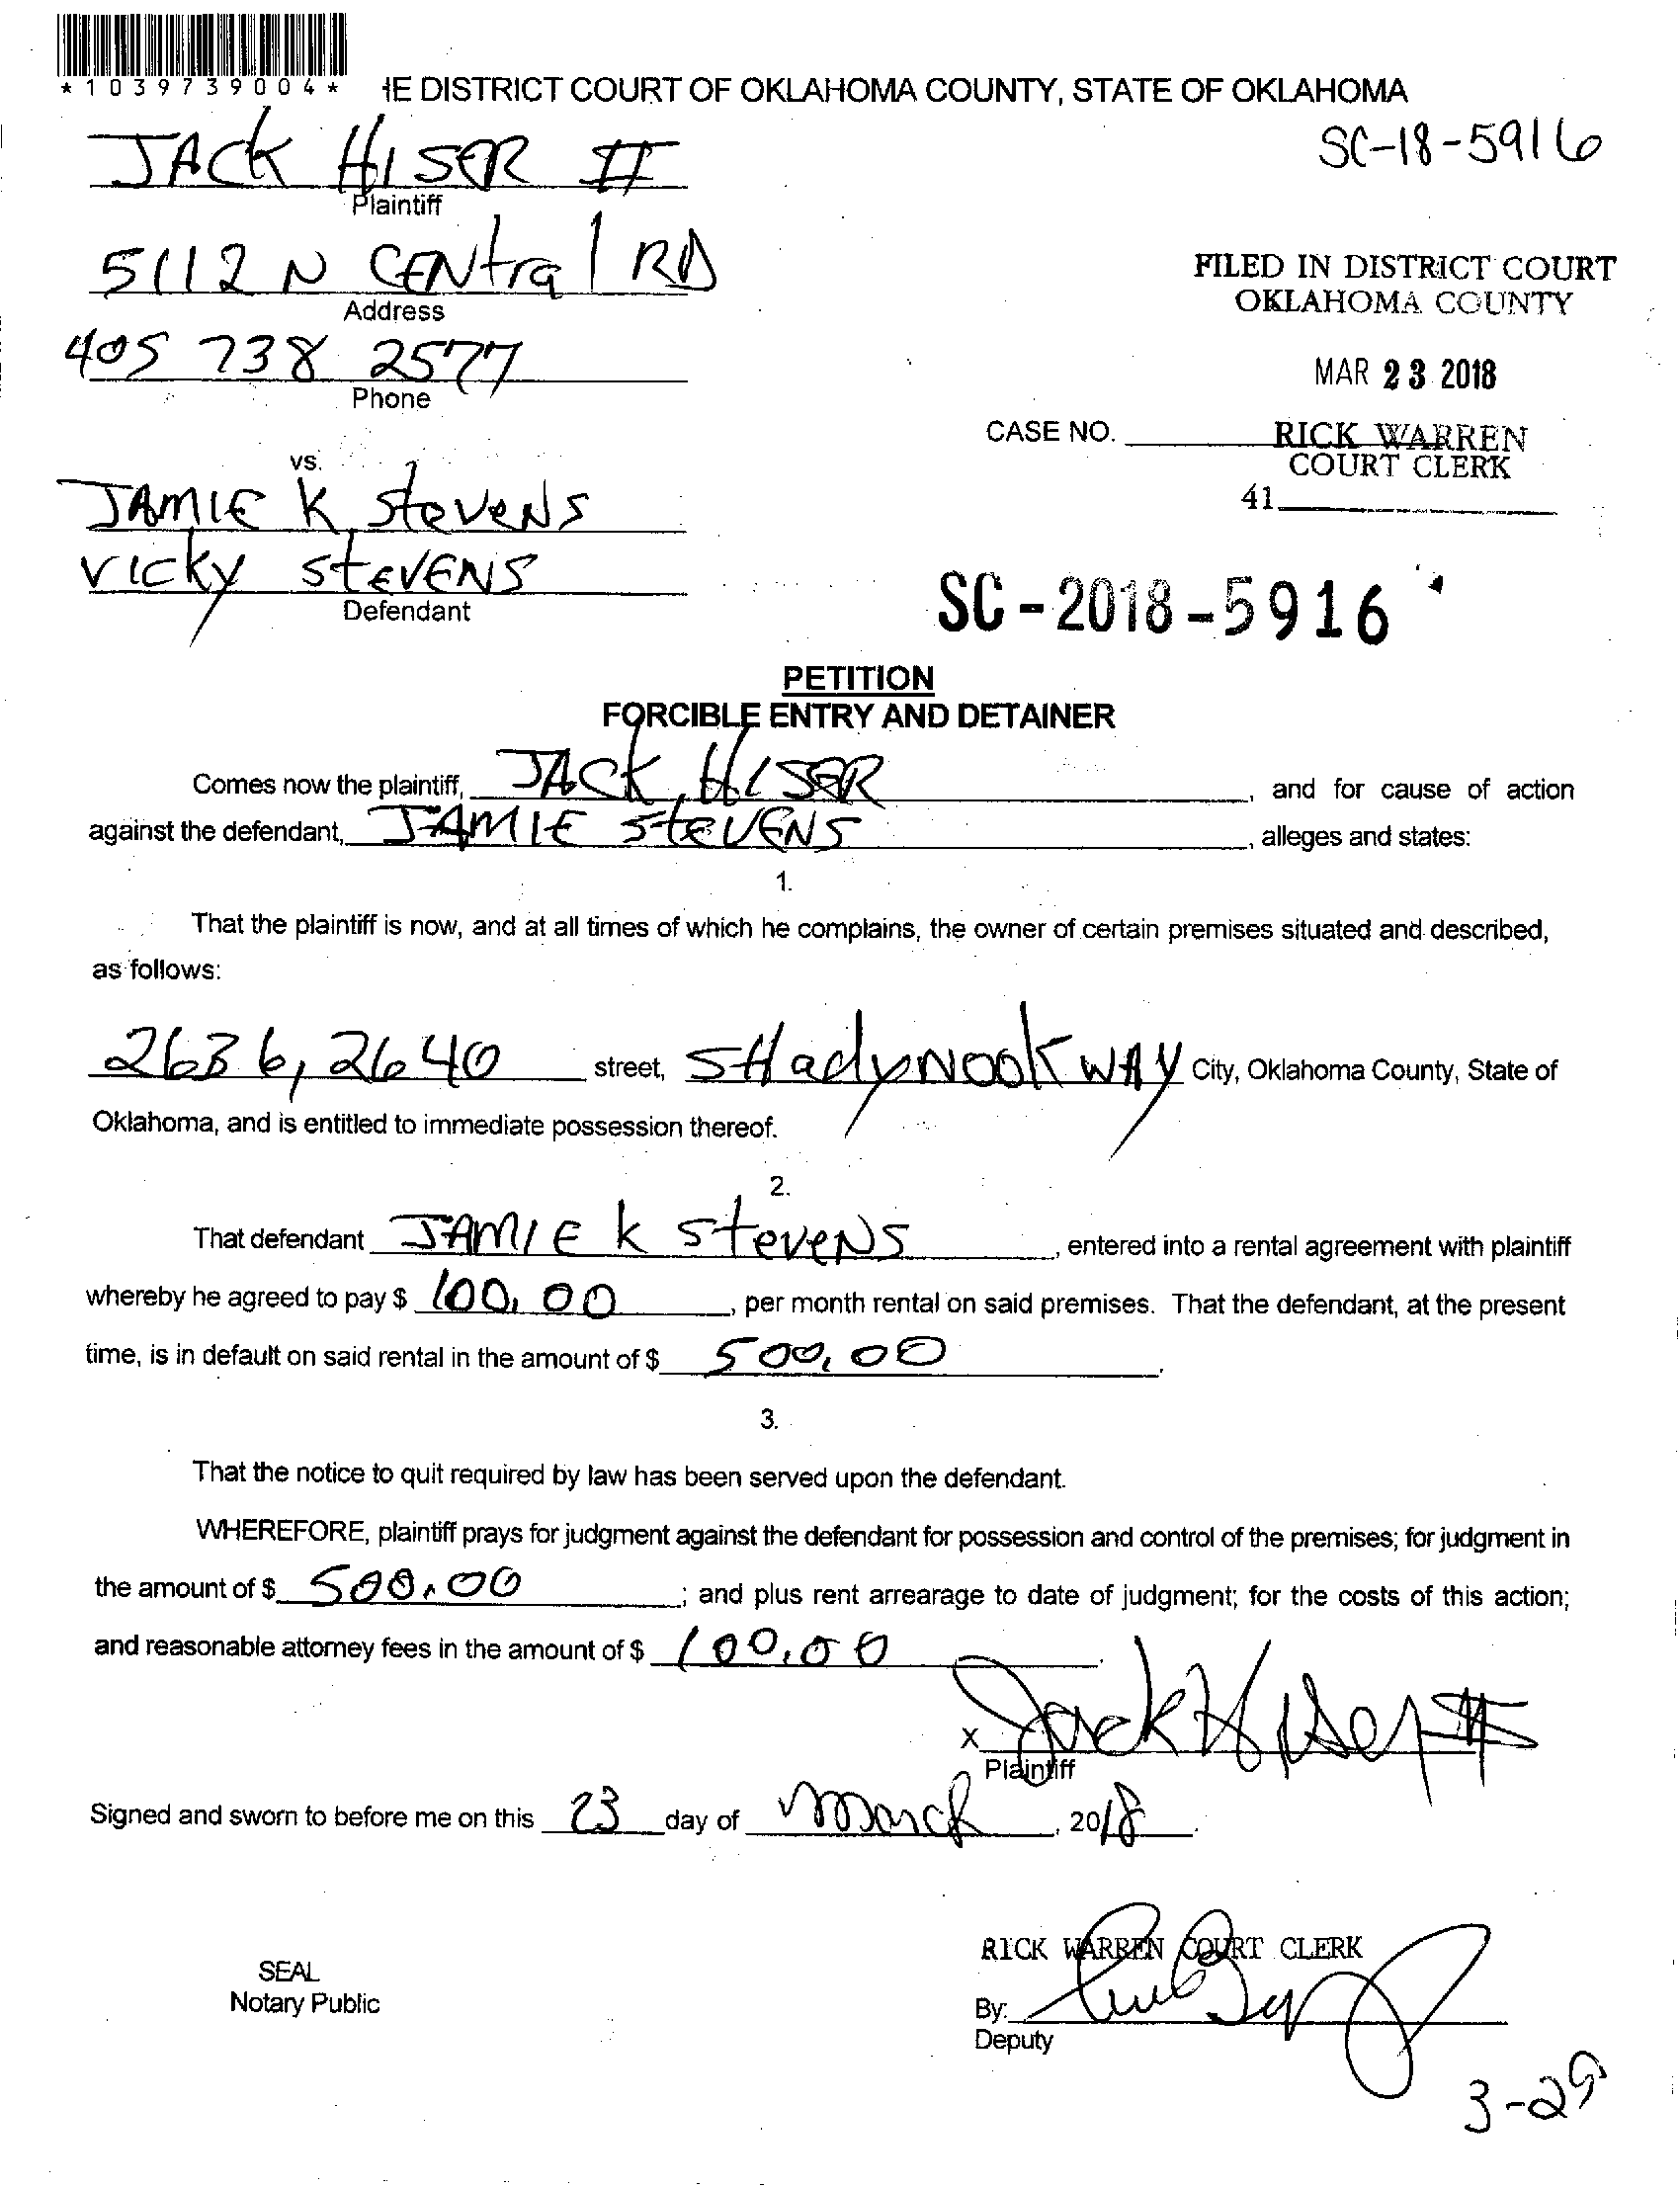 *1039739004*
HE DISTRICT COURT OF OKLAHOMA COUNTY, STATE OF OKLAHOMA
JACK HISER II
Plaintiff
SC-18-5916
5112 N CENtral RD
Address
FILED IN DISTRICT COURT
OKLAHOMA COUNTY
405 738 2577
Phone
MAR 23 2018
CASE NO.
RICK WARREN
COURT CLERK
41
vs.
JAMIE K SteveNS
VICKY StEVENS
Defendant
SC-2018-5916
PETITION
FORCIBLE ENTRY AND DETAINER
Comes now the plaintiff, JACK HISER, and for cause of action
against the defendant, JAMIE SteVENS, alleges and states:
1.
That the plaintiff is now, and at all times of which he complains, the owner of certain premises situated and described,
as follows:
2636, 2640 street, SHadyNook WAY City, Oklahoma County, State of
Oklahoma, and is entitled to immediate possession thereof.
2.
That defendant JAMIE K SteveNS, entered into a rental agreement with plaintiff
whereby he agreed to pay $ 100.00, per month rental on said premises. That the defendant, at the present
time, is in default on said rental in the amount of $ 500.00.
3.
That the notice to quit required by law has been served upon the defendant.
WHEREFORE, plaintiff prays for judgment against the defendant for possession and control of the premises; for judgment in
the amount of $ 500.00; and plus rent arrearage to date of judgment; for the costs of this action;
and reasonable attorney fees in the amount of $ 100.00.
X Jack Hiser II
Plaintiff
Signed and sworn to before me on this 23 day of March, 2018.
SEAL
Notary Public
RICK WARREN COURT CLERK
By:
Deputy
3-29